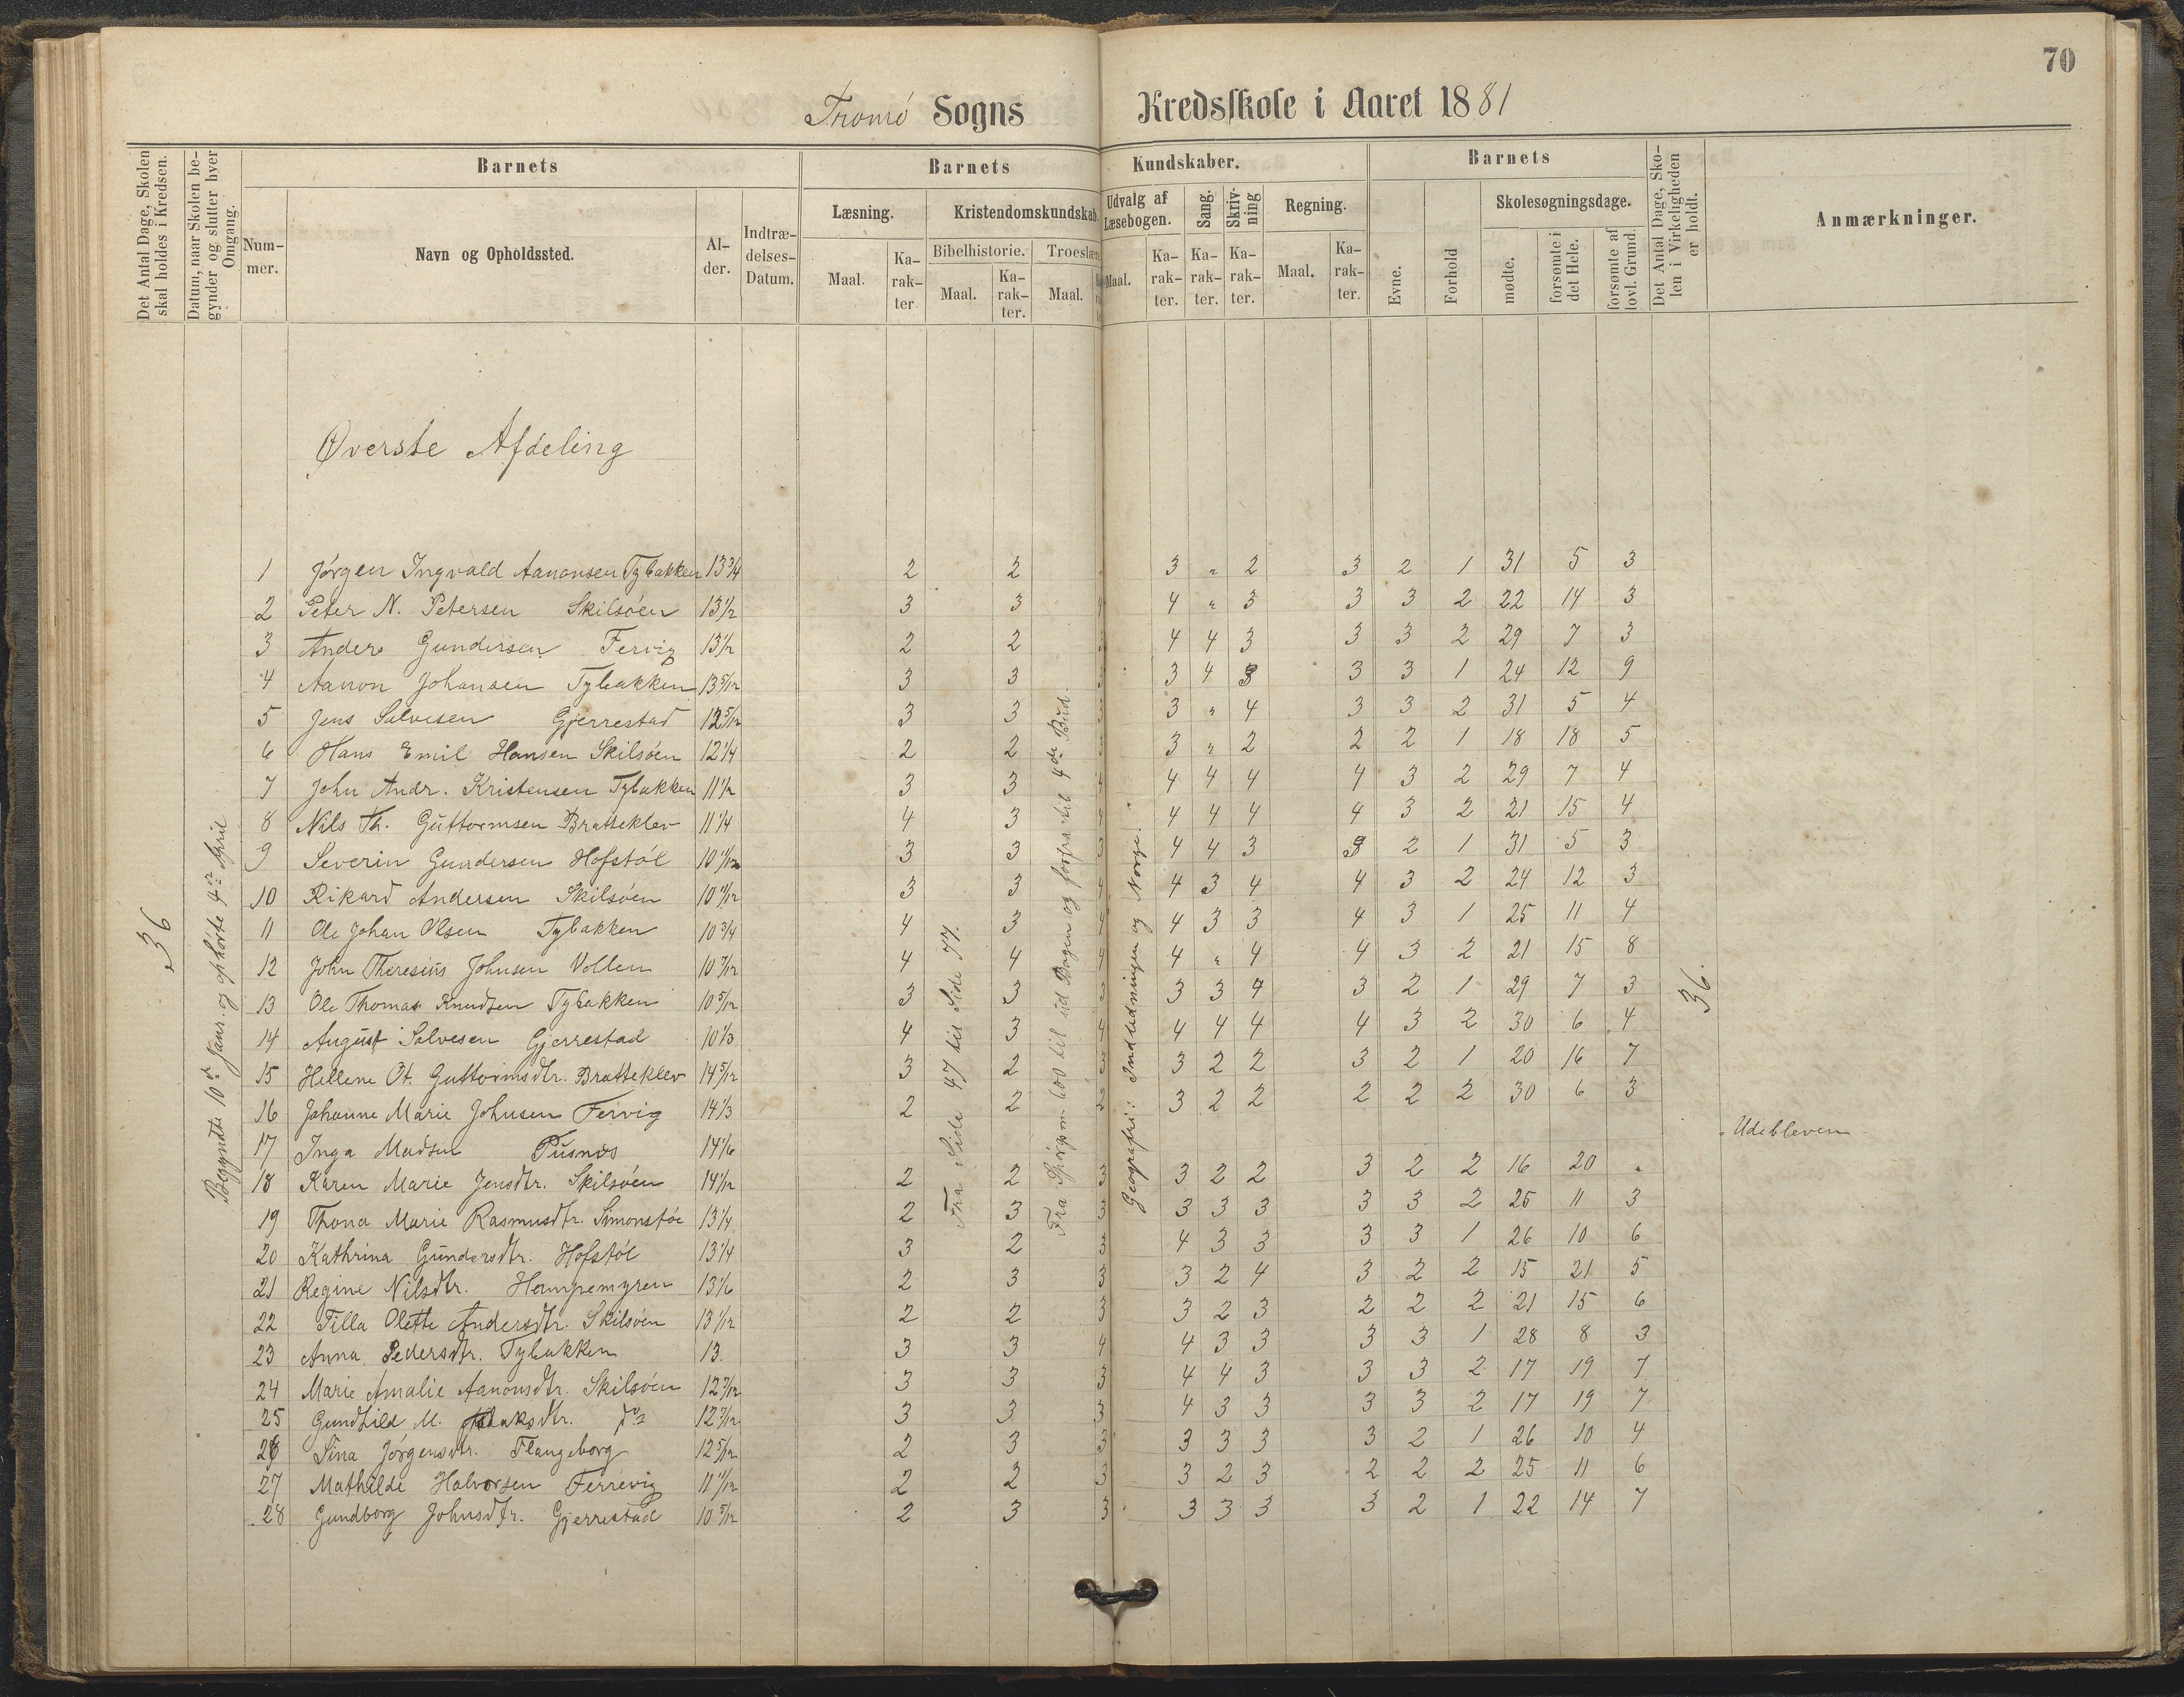 70
Tromø Sogns Kredsskole i Aaret 1881
Det Antal Dage, Skolen skal holdes i Kredsen.
Datum, naar Skolen begynder og slutter hver Omgang.
Barnets
Nummer.
Navn og Opholdssted.
Alder.
Indtrædelses-Datum.
Barnets Kundskaber.
Læsning.
Maal.
Karakter
Kristendomskundskab.
Bibelhistorie.
Maal.
Karakter.
Troeslære
Maal.
Udvalg af Læsebogen.
Maal.
Karakter.
Sang.
Karakter.
Skrivning
Karakter.
Regning.
Maal.
Karakter.
Barnets
Evne.
Forhold
Skolesøgningsdage.
mødte.
forsømte i det Hele.
forsømte af lovl. Grund.
Det Antal Dage, Skolen i Virkeligheden er holdt.
Anmærkninger.
Øverste Afdeling
36
Begyndte 10de Janr. og ophørte 4de April
Fra Side 47 til Side 77.
Fra Spørgsm 600 til ud Bogen og forfra til 4de Bud.
Geografi: Indledningen og Norge.
36.
1 Jørgen Ingvald Aanonsen Tybakken 13 3/4 2 2 3 " 2 3 2 1 31 5 3
2 Peter N. Petersen Skilsøen 13 1/2 3 3 4 4 " 3 3 3 2 22 14 3
3 Anders Gundersen Fervig 13 1/2 2 2 3 4 4 3 3 3 2 29 7 3
4 Aanon Johansen Tybakken 13 5/12 3 3 3 3 4 3 3 3 1 24 12 9
5 Jens Salvesen Gjerrestad 12 5/12 3 3 3 3 " 4 3 3 2 31 5 4
6 Hans Emil Hansen Skilsøen 12 1/4 2 2 3 3 " 2 2 2 1 18 18 5
7 John Andr. Kristensen Tybakken 11 1/2 3 3 4 4 4 4 4 3 2 29 7 4
8 Nils Th. Guttormsen Bratteklev 11 1/4 4 3 4 4 4 4 4 3 2 21 15 4
9 Severin Gundersen Hofstøl 10 11/12 3 3 3 4 4 3 3 2 1 31 5 3
10 Rikard Andersen Skilsøen 10 11/12 3 3 4 4 3 4 4 3 2 24 12 3
11 Ole Johan Olsen Tybakken 10 3/4 4 3 4 4 3 3 4 3 1 25 11 4
12 John Theresius Johnsen Vollen 10 7/12 4 4 4 4 " 4 4 3 2 21 15 8
13 Ole Thomas Knudsen Tybakken 10 5/12 3 3 3 3 3 4 3 2 1 29 7 3
14 August Salvesen Gjerrestad 10 1/3 4 3 4 4 4 4 4 3 2 30 6 4
15 Hellene Ot. Guttormsdtr. Bratteklev 14 5/12 3 2 3 3 2 2 3 2 1 20 16 7
16 Johanne Marie Johnsen Fervig 14 1/3 2 2 3 3 2 2 2 2 2 30 6 3
17 Inga Madsen Pusnes 14 1/6 " Udebleven
18 Karen Marie Jensdtr. Skilsøen 14 1/12 2 2 3 3 2 2 3 2 2 16 20 "
19 Thona Marie Rasmusdtr. Simonstøe 13 1/4 2 3 3 3 3 3 3 3 2 25 11 3
20 Kathrina Gundersdtr. Hofstøl 13 1/4 3 2 3 4 3 3 3 3 1 26 10 6
21 Regine Nilsdtr. Hampemyren 13 1/6 2 3 3 3 2 4 3 2 2 15 21 5
22 Tilla Olette Andersdtr. Skilsøen 13 1/12 2 2 3 3 2 3 2 2 2 21 15 6
23 Anna Pedersdtr. Tybakken 13. 3 3 4 4 3 3 3 3 1 28 8 3
24 Marie Amalie Aanonsdtr. Skilsøen 12 7/12 3 3 3 4 4 3 3 3 2 17 19 7
25 Gundhild M. do 12 7/12 3 3 3 4 3 3 3 3 2 17 19 7
26 Sina Jørgensdtr. Flangeborg 12 5/12 2 3 3 3 3 3 3 2 1 26 10 4
27 Mathilde Halvorsen Ferrevig 11 11/12 2 2 3 3 2 3 2 2 2 25 11 6
28 Gundborg Johnsdtr. Gjerrestad 10 5/12 2 3 3 3 3 3 3 2 1 22 14 7